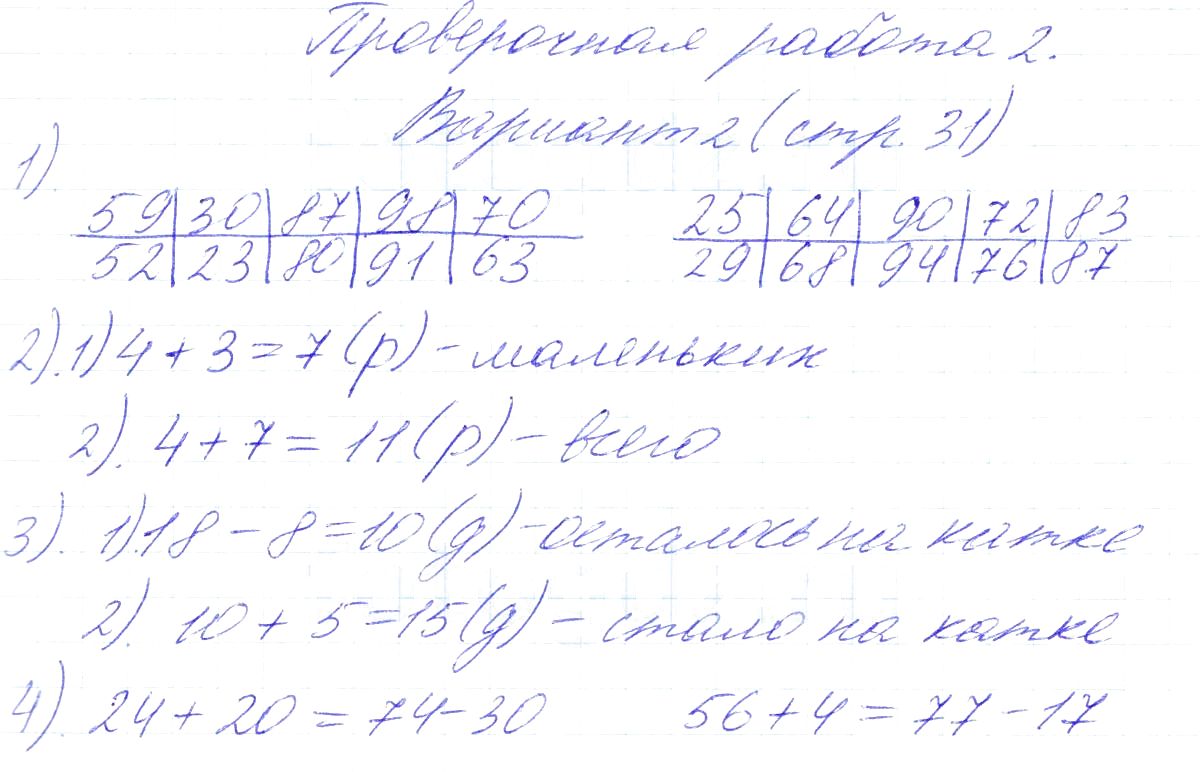 Проверочная работа 2.
Вариант 2 (стр. 31)
1)
59|30|87|98|70 25|64|90|72|83
52|23|80|91|63 29|68|94|76|87
2). 1) 4 + 3 = 7 (р) - маленьких
2). 4 + 7 = 11 (р) - всего
3). 1). 18 - 8 = 10 (д) - осталось на катке
2). 10 + 5 = 15 (д) - стало на катке
4). 24 + 20 = 74 - 30 56 + 4 = 77 - 17